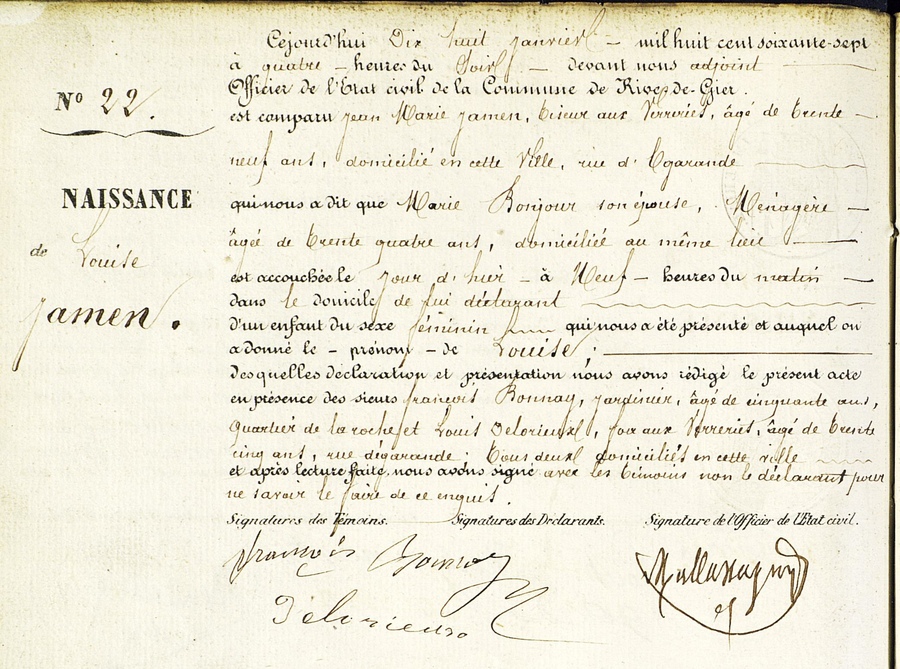 Cejourd'hui Dix huit Janvier – mil huit cent soixante-sept
à quatre – heures du Soir – devant nous adjoint
Officier de l'Etat civil de la Commune de Rive-de-Gier.
N° 22.
est comparu Jean Marie Jamen, Tiseur aux Verreries, âgé de trente
neuf ans, domicilié en cette Ville, rue d'Egarande
NAISSANCE
de Louise
Jamen.
qui nous a dit que Marie Bonjour son épouse, Ménagère
âgée de trente quatre ans, domiciliée au même lieu
est accouchée le jour d'hier – à Neuf – heures du matin
dans le domicile de lui déclarant
d'un enfant du sexe féminin qui nous a été présenté et auquel on
a donné le – prénom – de Louise ;
desquelles déclaration et présentation nous avons rédigé le présent acte
en présence des sieurs françois Bonnay, jardinier, âgé de cinquante ans,
quartier de la roche et Louis Delorieux, aux Verreries, âgé de trente
cinq ans, rue dégarande ; tous deux domiciliés en cette ville
et après lecture faite, nous avons signé avec les témoins non le déclarant pour
ne savoir le faire de ce enquis.
Signatures des Témoins. Signatures des Déclarants. Signature de l'Officier de l'Etat civil.
françois Bonnay
Delorieux